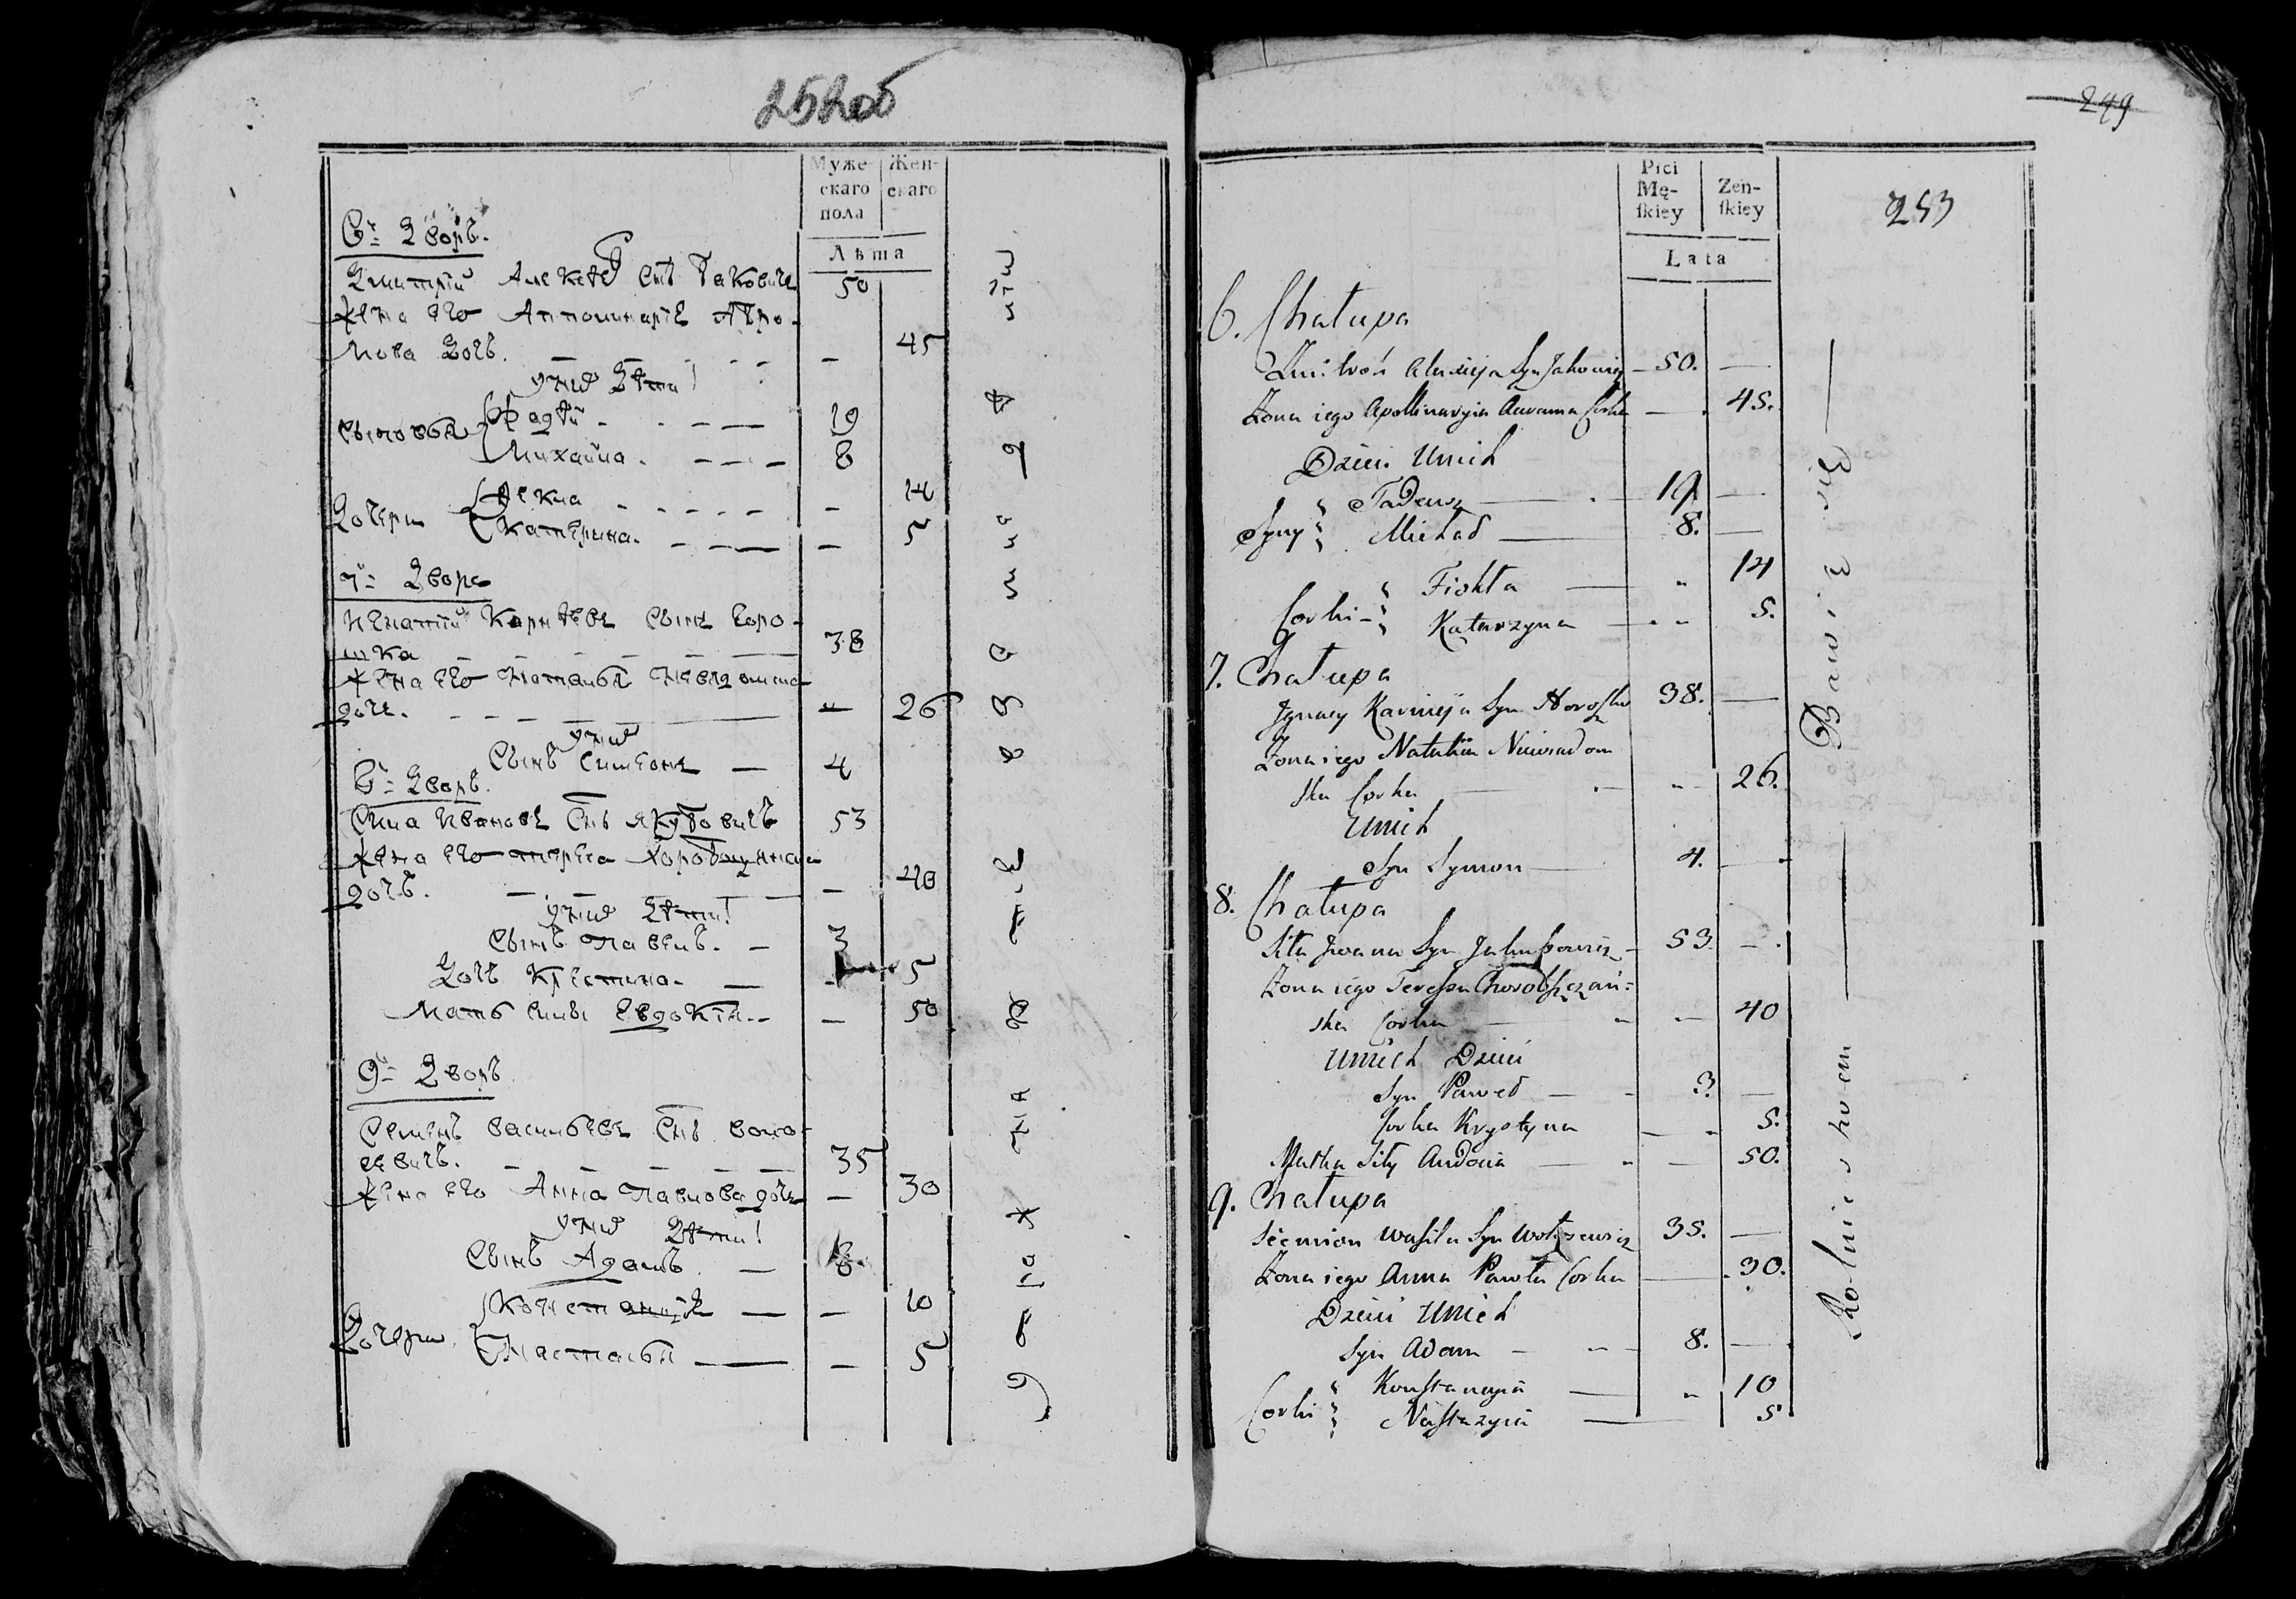 252об
Муже-
скаго
пола
Жен-
скаго
Лѣта
6й Дворъ.
Дмитрій Алексѣев Снъ Яковичъ 50
Жена его Апполинаріѣ Авра-
мова Дочь. — 45
у них Дѣти
Сыновья Фадѣй 19
Михайла. 8
Дочери Ѳекла — 14
Катерина. — 5
7й Дворъ
Игнатій Карнѣевъ Сынъ Горо-
шка 38
Жена его Наталья Невядомска
дочь. — 26
у них
Сынъ Симеонъ — 4
8й Дворъ.
Сила Ивановъ Снъ Якубовичъ 53
Жена его Тереса Хоробщанска
дочь. — 40
у них Дѣти
Сынъ Павелъ. — 3
Дочь Крестина. — 5
Мать Силы Евдокія — 50
9й Дворъ
Семенъ Васильевъ Снъ Воло-
севичъ. 35
Жена его Анна Павлова дочь — 30
у них Дѣти
Сынъ Адамъ — 8
Дочери Констанціѣ — 10
Настасья — 5
249
253
Płci
Mę-
ſkiey
Zeń-
ſkiey
Lata
6. Chałupa
Alexieja Syn Jakowicz 50. —
Zona iego Apollinaryia Aurama Corka — 45.
Dzieci Unich
Syny Tadeusz 19. —
Michał 8. —
Corki Fiokła 14
Katarzyna 5.
7. Chałupa
Ignacy Karnieja Syn Horoszko 38. —
Zona iego Nataliia Niewiadom
ska Corka 26.
Unich
Syn Symon 4. —
8. Chałupa
Siła Jwana Syn Jakubowicz 53 —
Zona iego Teressa Chorobszczań=
ska Corka 40
Unich Dzieci
Syn Paweł 3. —
Corka Krystyna — 5.
Matka Siły Audocia — 50.
9. Chałupa
Siemion Wasila Syn Wołosewicz 35. —
Zona iego Anna Pawła Corka — 30.
Dzieci Unich
Syn Adam 8. —
Corki Konstancyia 10
Nastazyia 5
Rolnictwem — Bawią się —